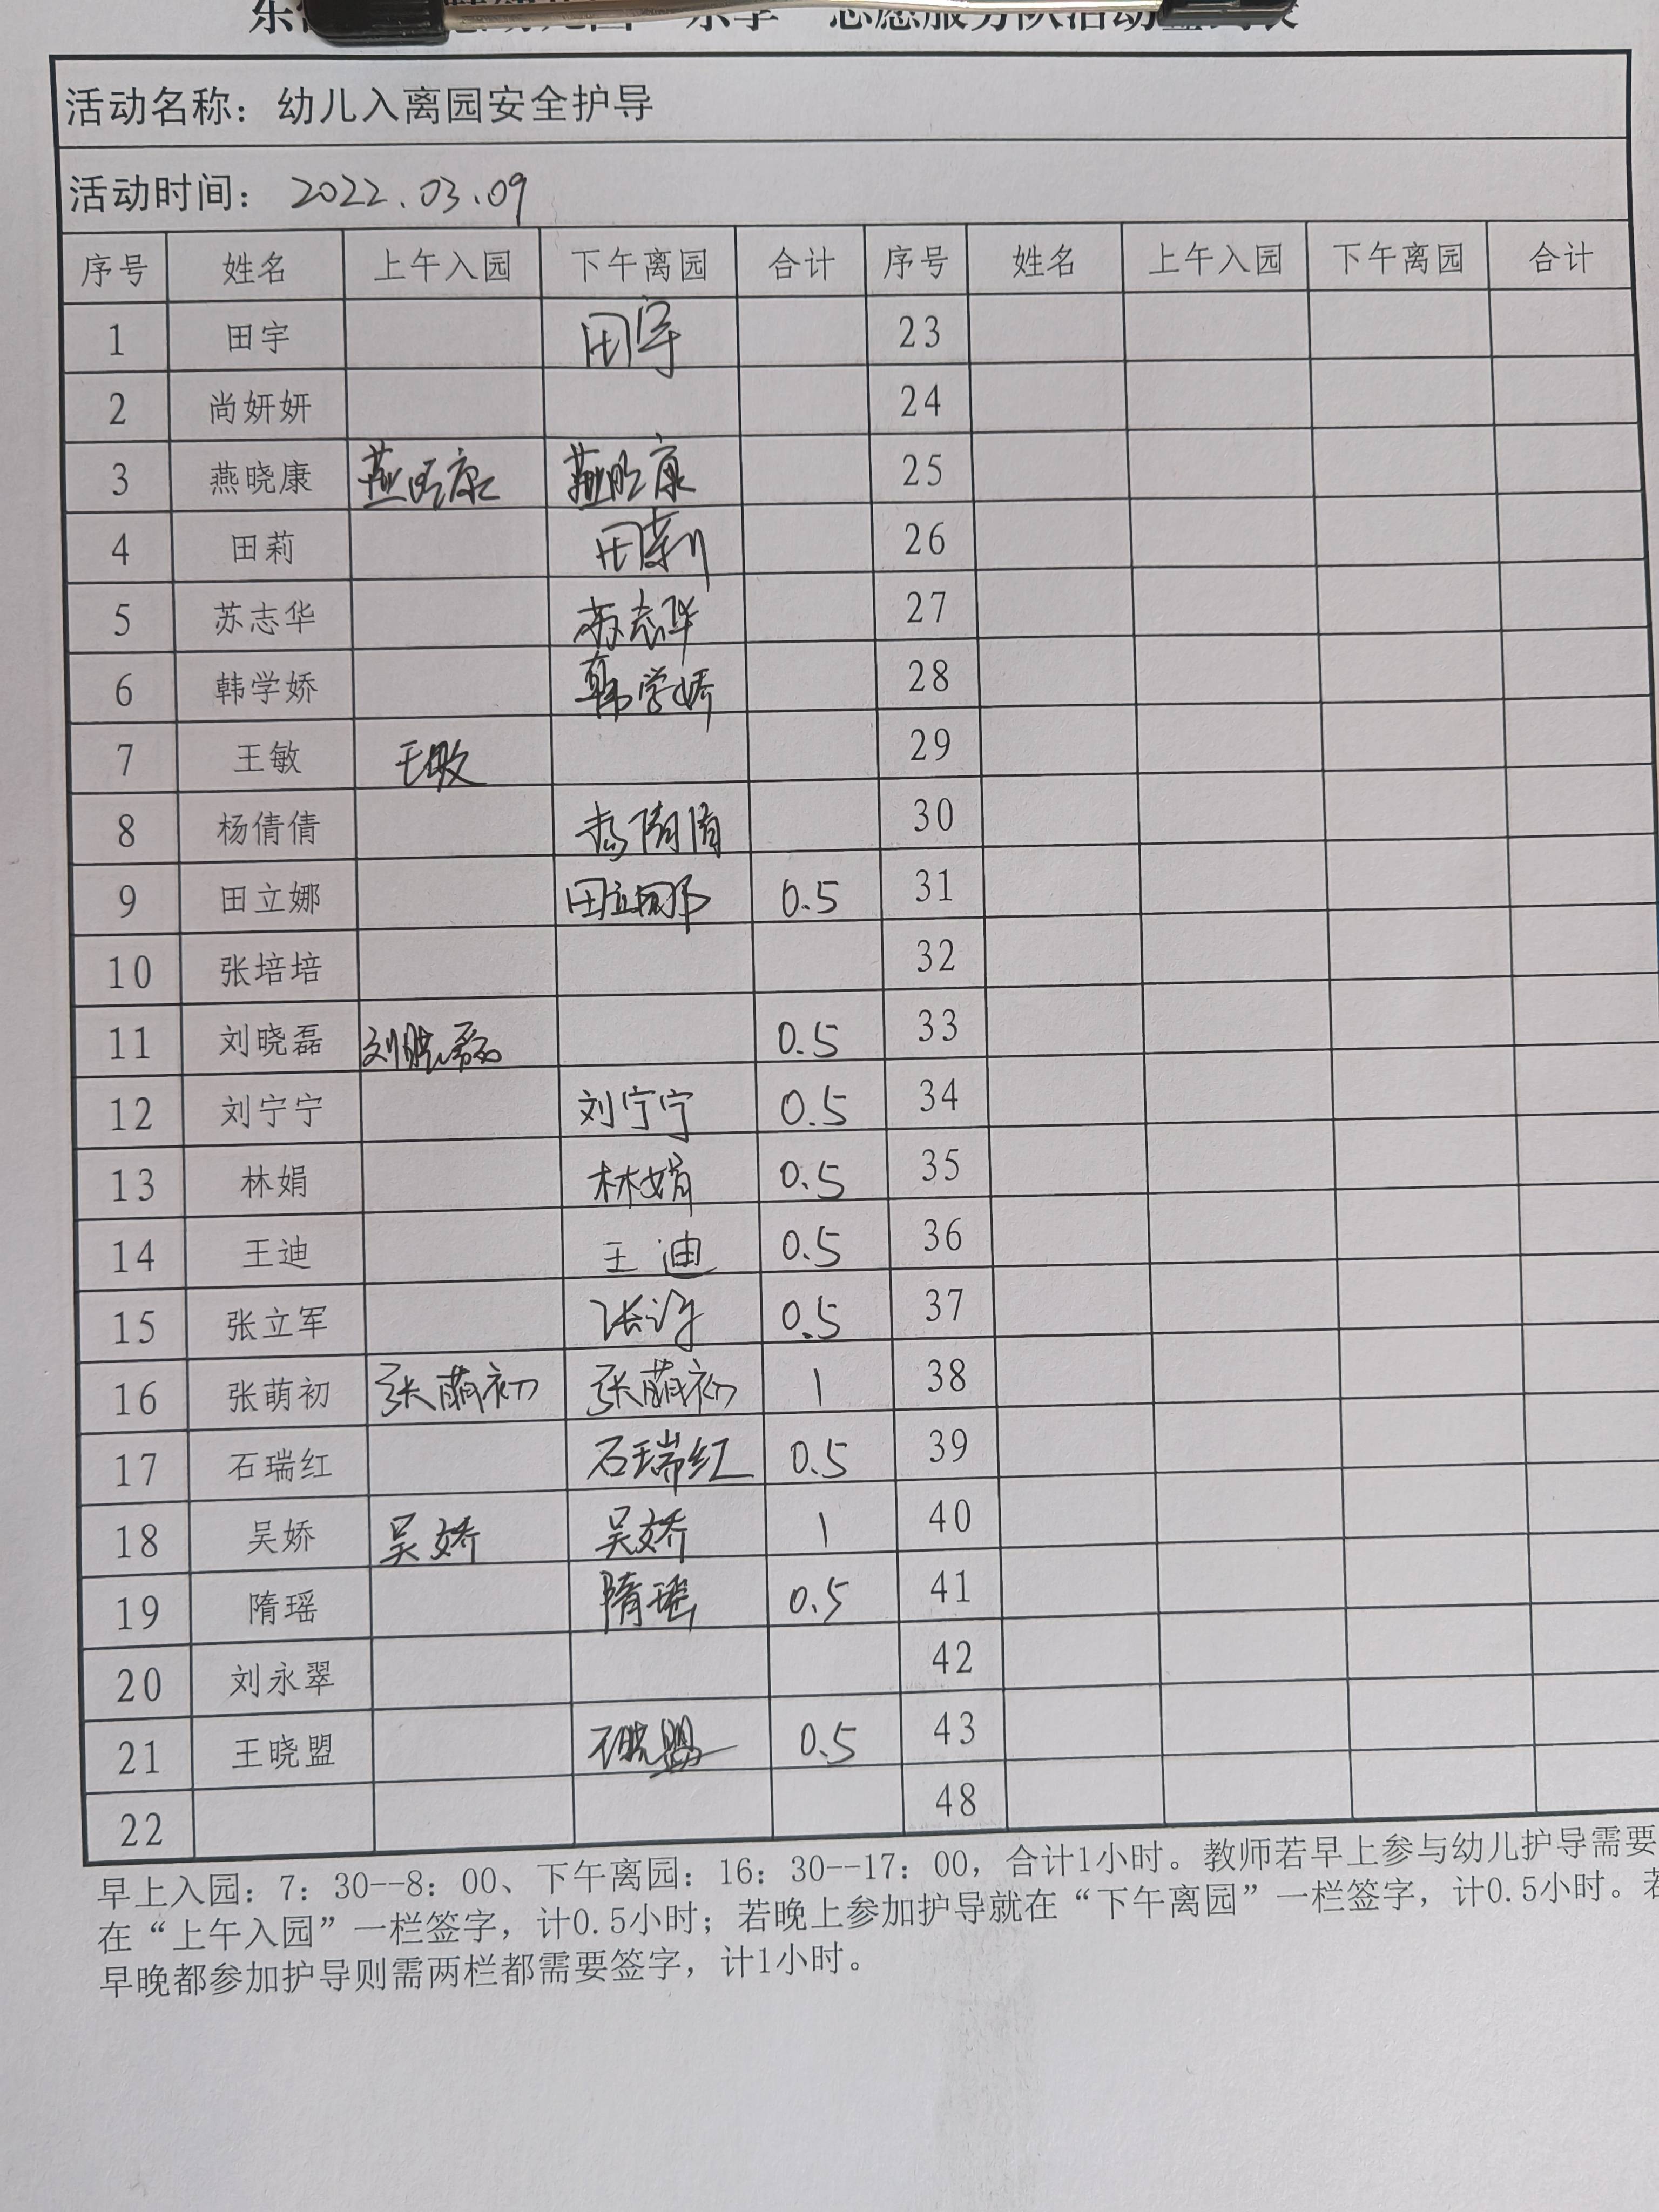 志愿服务队活动签到表
活动名称：幼儿入离园安全护导
活动时间： 2022.03.09
序号 姓名 上午入园 下午离园 合计 序号 姓名 上午入园 下午离园 合计
1 田宇 田宇 23
2 尚妍妍 24
3 燕晓康 燕晓康 燕晓康 25
4 田莉 田莉 26
5 苏志华 苏志华 27
6 韩学娇 韩学娇 28
7 王敏 王敏 29
8 杨倩倩 杨倩倩 30
9 田立娜 田立娜 0.5 31
10 张培培 32
11 刘晓磊 刘晓磊 0.5 33
12 刘宁宁 刘宁宁 0.5 34
13 林娟 林娟 0.5 35
14 王迪 王迪 0.5 36
15 张立军 张立军 0.5 37
16 张萌初 张萌初 张萌初 1 38
17 石瑞红 石瑞红 0.5 39
18 吴娇 吴娇 吴娇 1 40
19 隋瑶 隋瑶 0.5 41
20 刘永翠 42
21 王晓盟 王晓盟 0.5 43
22 48
早上入园：7：30--8：00、下午离园：16：30--17：00，合计1小时。教师若早上参与幼儿护导需要
在“上午入园”一栏签字，计0.5小时；若晚上参加护导就在“下午离园”一栏签字，计0.5小时。若
早晚都参加护导则需两栏都需要签字，计1小时。